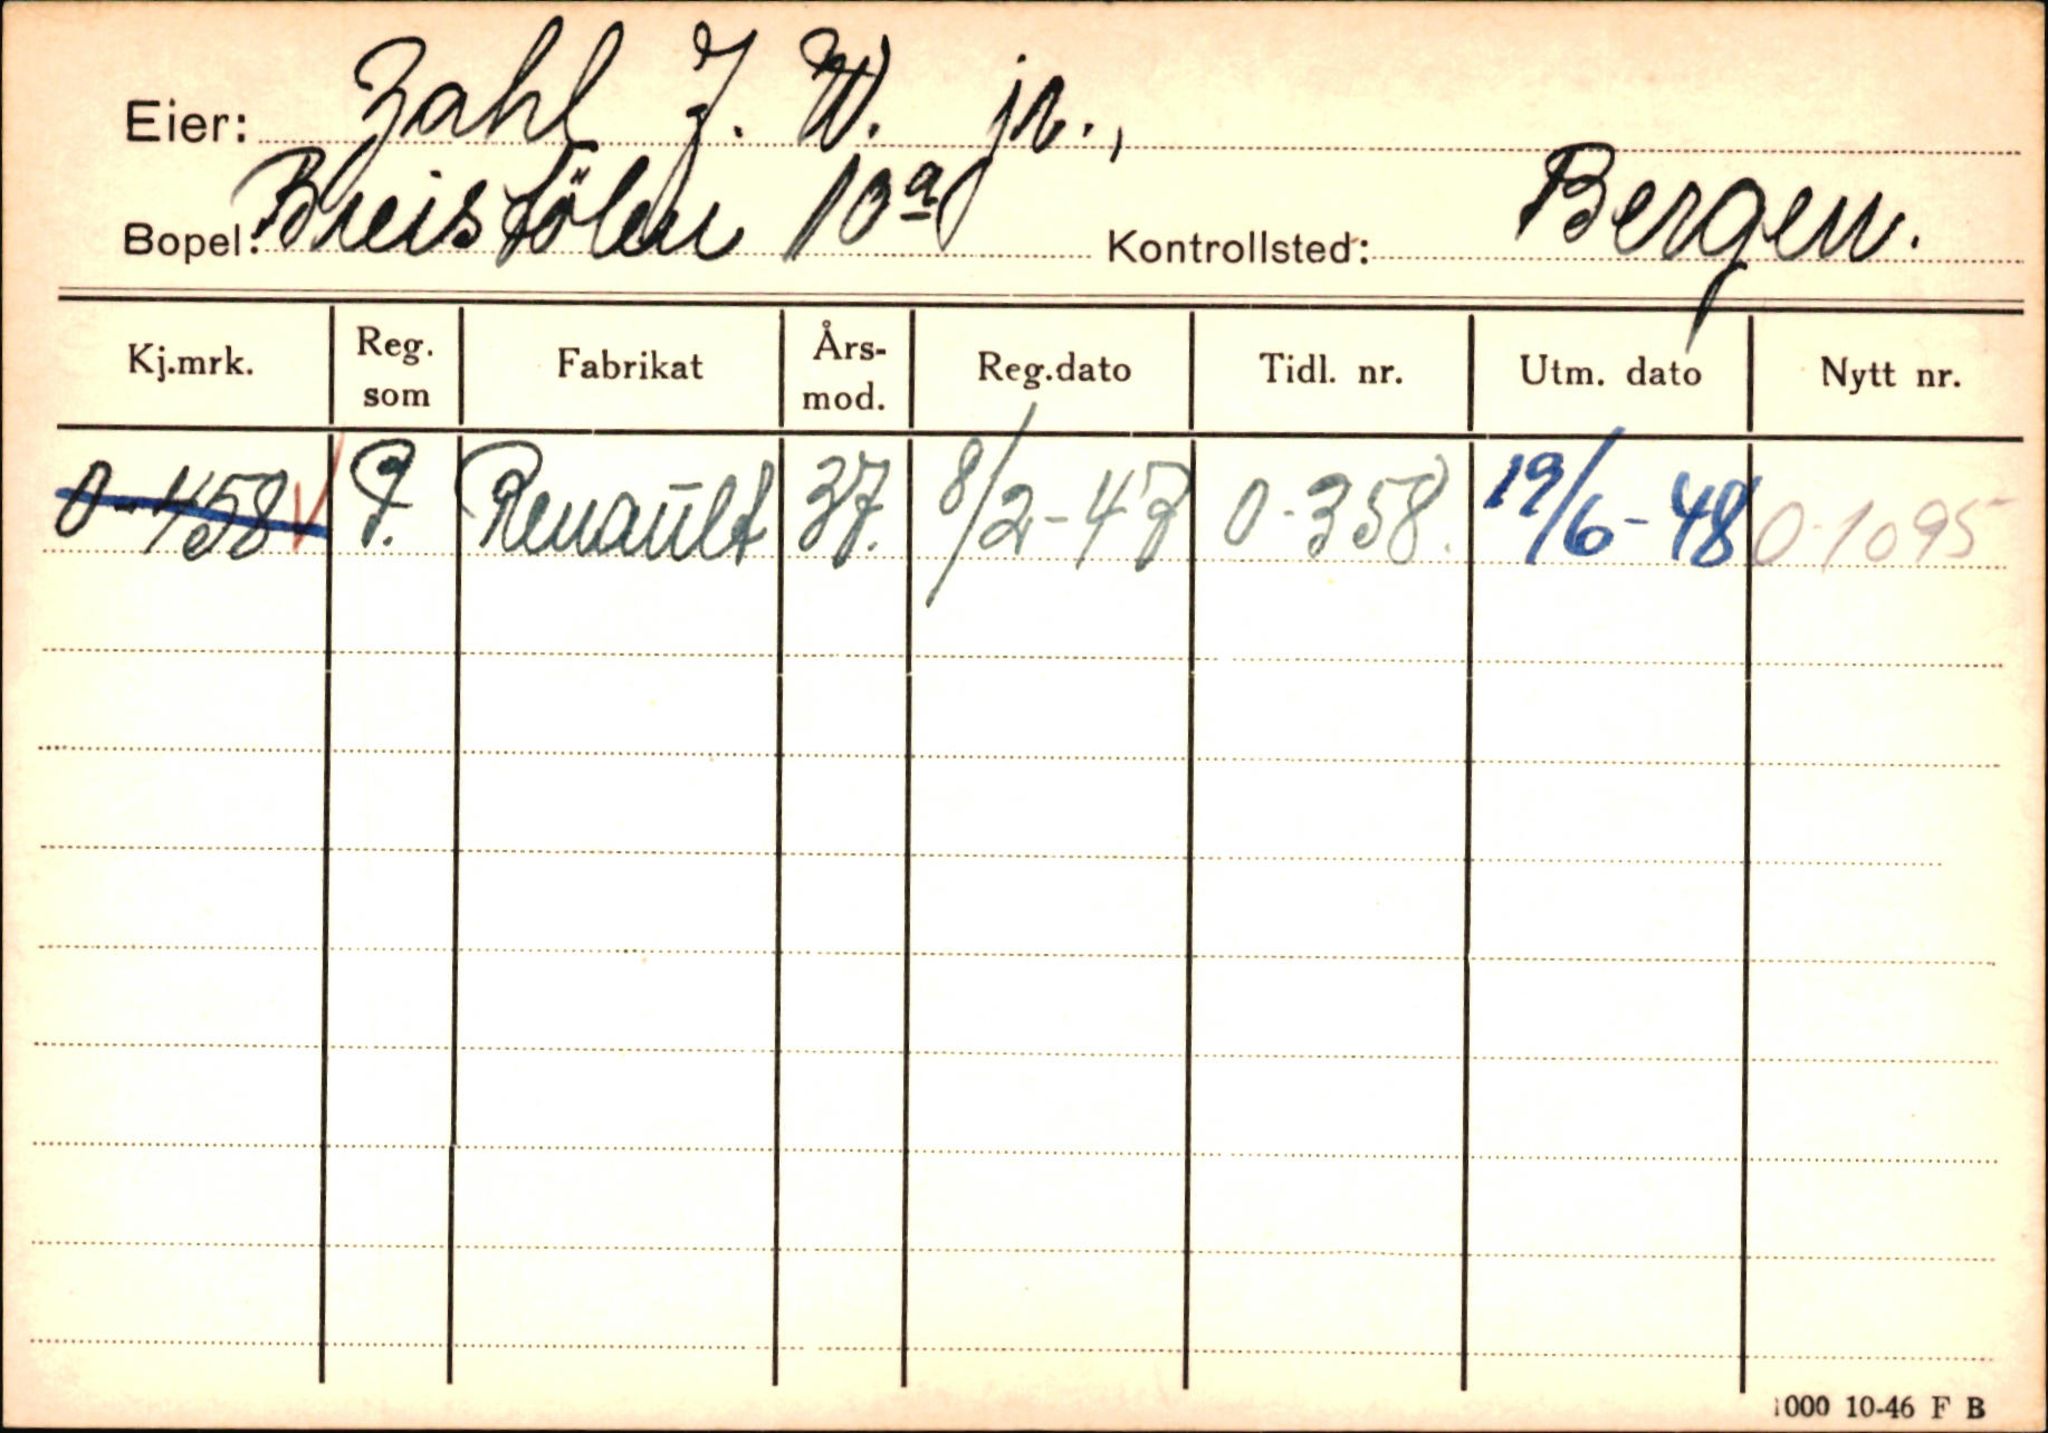 Eier: Zahl J. W. jr.,
Bopel: Breistölen 10a Kontrollsted: Bergen.
Kj.mrk. Reg. som Fabrikat Års-mod. Reg.dato Tidl. nr. Utm. dato Nytt nr.
O-458 V P. Renault 37. 8/2-47 O-358. 19/6-48 O-1095
1000 10-46 F B